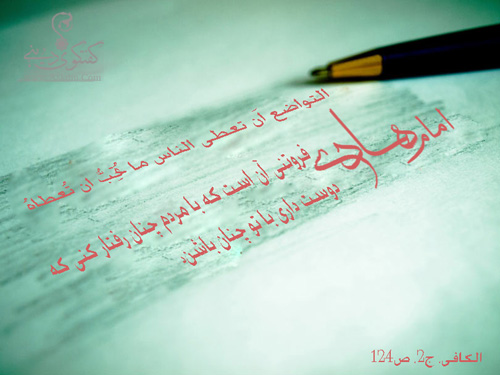 التواضع أن تعطی الناس ما تُحِبُّ ان تُعطاهُ
امام هادی
فروتنی آن است که با مردم چنان رفتار کنی که
دوست داری با تو چنان باشند.
الکافی، ج2، ص124